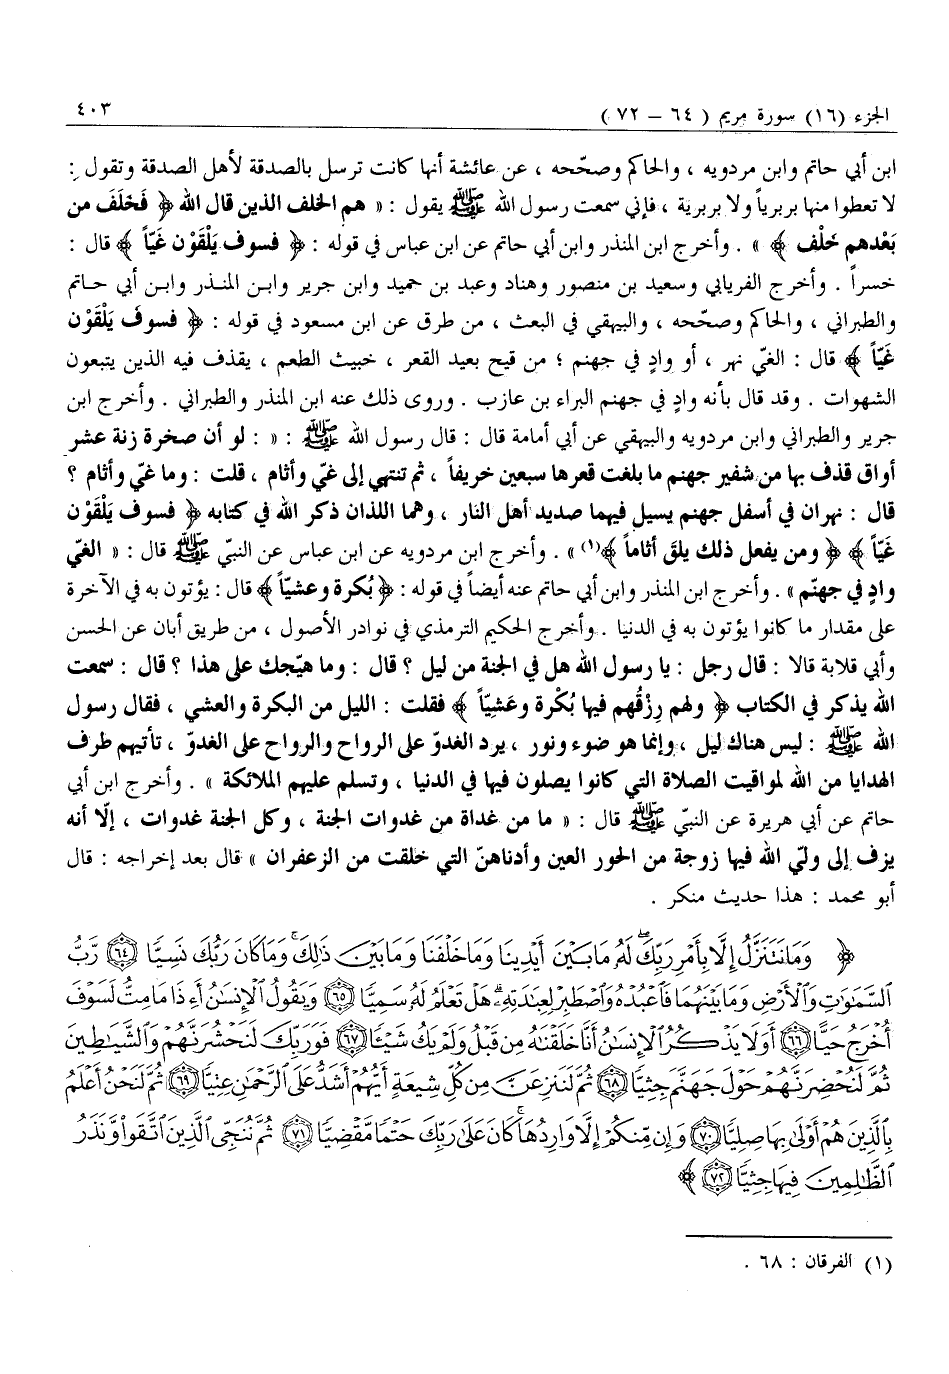 الجزء (١٦) سورة مريم ( ٦٤ – ٧٢ ) ٤٠٣
ابن أبي حاتم وابن مردويه ، والحاكم وصحّحه ، عن عائشة أنها كانت ترسل بالصدقة لأهل الصدقة وتقول :
لا تعطوا منها بربرياً ولا بربرية ، فإني سمعت رسول الله ﷺ يقول : « هم الخلف الذين قال الله ﴿ فَخَلَفَ من
بَعْدهم خَلْف ﴾ » . وأخرج ابن المنذر وابن أبي حاتم عن ابن عباس في قوله : ﴿ فسوف يَلْقَوْن غَيّاً ﴾ قال :
خسراً . وأخرج الفريابي وسعيد بن منصور وهناد وعبد بن حميد وابن جرير وابن المنذر وابن أبي حاتم
والطبراني ، والحاكم وصحّحه ، والبيهقي في البعث ، من طرق عن ابن مسعود في قوله : ﴿ فسوفَ يَلْقَوْن
غَيّاً ﴾ قال : الغيّ نهر ، أو وادٍ في جهنم ؛ من قيح بعيد القعر ، خبيث الطعم ، يقذف فيه الذين يتبعون
الشهوات . وقد قال بأنه وادٍ في جهنم البراء بن عازب . وروى ذلك عنه ابن المنذر والطبراني . وأخرج ابن
جرير والطبراني وابن مردويه والبيهقي عن أبي أمامة قال : قال رسول الله ﷺ : « : لو أن صخرة زنة عشر
أواق قذف بها من شفير جهنم ما بلغت قعرها سبعين خريفاً ، ثم تنتهي إلى غيّ وأثام ، قلت : وما غيّ وأثام ؟
قال : نهران في أسفل جهنم يسيل فيهما صديد أهل النار ، وهما اللذان ذكر الله في كتابه ﴿ فسوف يَلْقَوْن
غَيّاً ﴾ ﴿ ومن يفعل ذلك يلقَ أثاماً ﴾(١) » . وأخرج ابن مردويه عن ابن عباس عن النبيّ ﷺ قال : « الغيّ
وادٍ في جهنّم » . وأخرج ابن المنذر وابن أبي حاتم عنه أيضاً في قوله : ﴿ بُكرة وعشيّاً ﴾ قال : يؤتون به في الآخرة
على مقدار ما كانوا يؤتون به في الدنيا . وأخرج الحكيم الترمذي في نوادر الأصول ، من طريق أبان عن الحسن
وأبي قلابة قالا : قال رجل : يا رسول الله هل في الجنة من ليل ؟ قال : وما هيّجك على هذا ؟ قال : سمعت
الله يذكر في الكتاب ﴿ ولهم رِزْقُهم فيها بُكْرة وعَشيّاً ﴾ فقلت : الليل من البكرة والعشي ، فقال رسول
الله ﷺ : ليس هناك ليل ، وإنما هو ضوء ونور ، يرد الغدوّ على الرواح والرواح على الغدوّ ، تأتيهم طرف
الهدايا من الله لمواقيت الصلاة التي كانوا يصلون فيها في الدنيا ، وتسلم عليهم الملائكة » . وأخرج ابن أبي
حاتم عن أبي هريرة عن النبيّ ﷺ قال : « ما من غداة من غدوات الجنة ، وكل الجنة غدوات ، إلّا أنه
يزف إلى وليّ الله فيها زوجة من الحور العين وأدناهنّ التي خلقت من الزعفران » قال بعد إخراجه : قال
أبو محمد : هذا حديث منكر .
﴿ وَمَا نَتَنَزَّلُ إِلَّا بِأَمْرِ رَبِّكَ ۖ لَهُۥ مَا بَيْنَ أَيْدِينَا وَمَا خَلْفَنَا وَمَا بَيْنَ ذَٰلِكَ ۚ وَمَا كَانَ رَبُّكَ نَسِيًّا ﴿٦٤﴾ رَّبُّ
ٱلسَّمَٰوَٰتِ وَٱلْأَرْضِ وَمَا بَيْنَهُمَا فَٱعْبُدْهُ وَٱصْطَبِرْ لِعِبَٰدَتِهِۦ ۚ هَلْ تَعْلَمُ لَهُۥ سَمِيًّا ﴿٦٥﴾ وَيَقُولُ ٱلْإِنسَٰنُ أَءِذَا مَا مِتُّ لَسَوْفَ
أُخْرَجُ حَيًّا ﴿٦٦﴾ أَوَلَا يَذْكُرُ ٱلْإِنسَٰنُ أَنَّا خَلَقْنَٰهُ مِن قَبْلُ وَلَمْ يَكُ شَيْـًٔا ﴿٦٧﴾ فَوَرَبِّكَ لَنَحْشُرَنَّهُمْ وَٱلشَّيَٰطِينَ
ثُمَّ لَنُحْضِرَنَّهُمْ حَوْلَ جَهَنَّمَ جِثِيًّا ﴿٦٨﴾ ثُمَّ لَنَنزِعَنَّ مِن كُلِّ شِيعَةٍ أَيُّهُمْ أَشَدُّ عَلَى ٱلرَّحْمَٰنِ عِتِيًّا ﴿٦٩﴾ ثُمَّ لَنَحْنُ أَعْلَمُ
بِٱلَّذِينَ هُمْ أَوْلَىٰ بِهَا صِلِيًّا ﴿٧٠﴾ وَإِن مِّنكُمْ إِلَّا وَارِدُهَا ۚ كَانَ عَلَىٰ رَبِّكَ حَتْمًا مَّقْضِيًّا ﴿٧١﴾ ثُمَّ نُنَجِّى ٱلَّذِينَ ٱتَّقَوا۟ وَّنَذَرُ
ٱلظَّٰلِمِينَ فِيهَا جِثِيًّا ﴿٧٢﴾ ﴾
(١) الفرقان : ٦٨ .